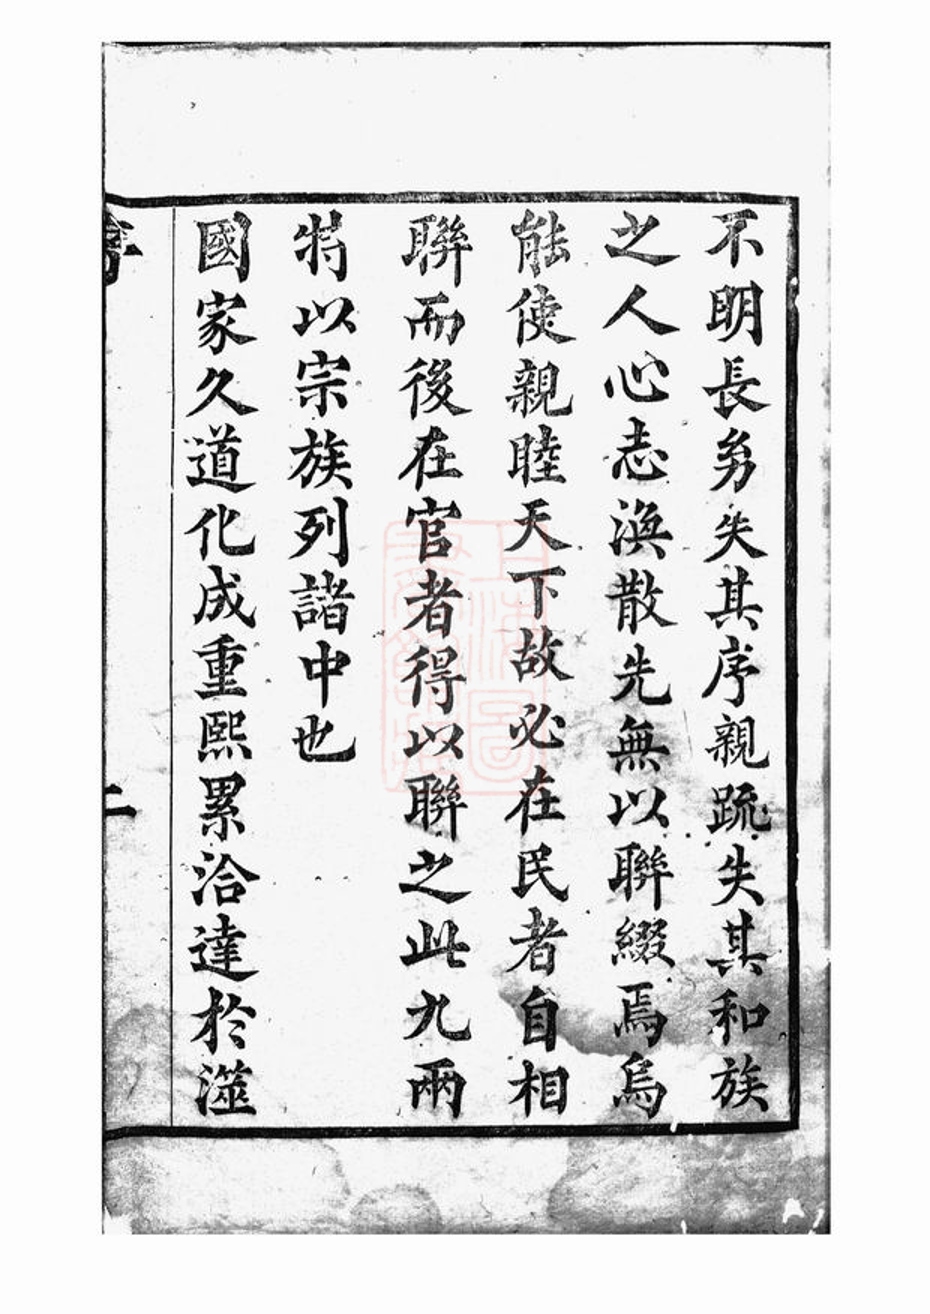 不明長㓜失其序親疏失其和族
之人心志渙散先無以聯綴焉烏
能使親睦天下故必在民者自相
聯而後在官者得以聯之此九兩
特以宗族列諸中也
國家久道化成重熙累洽達於澨
序
二
上海圖